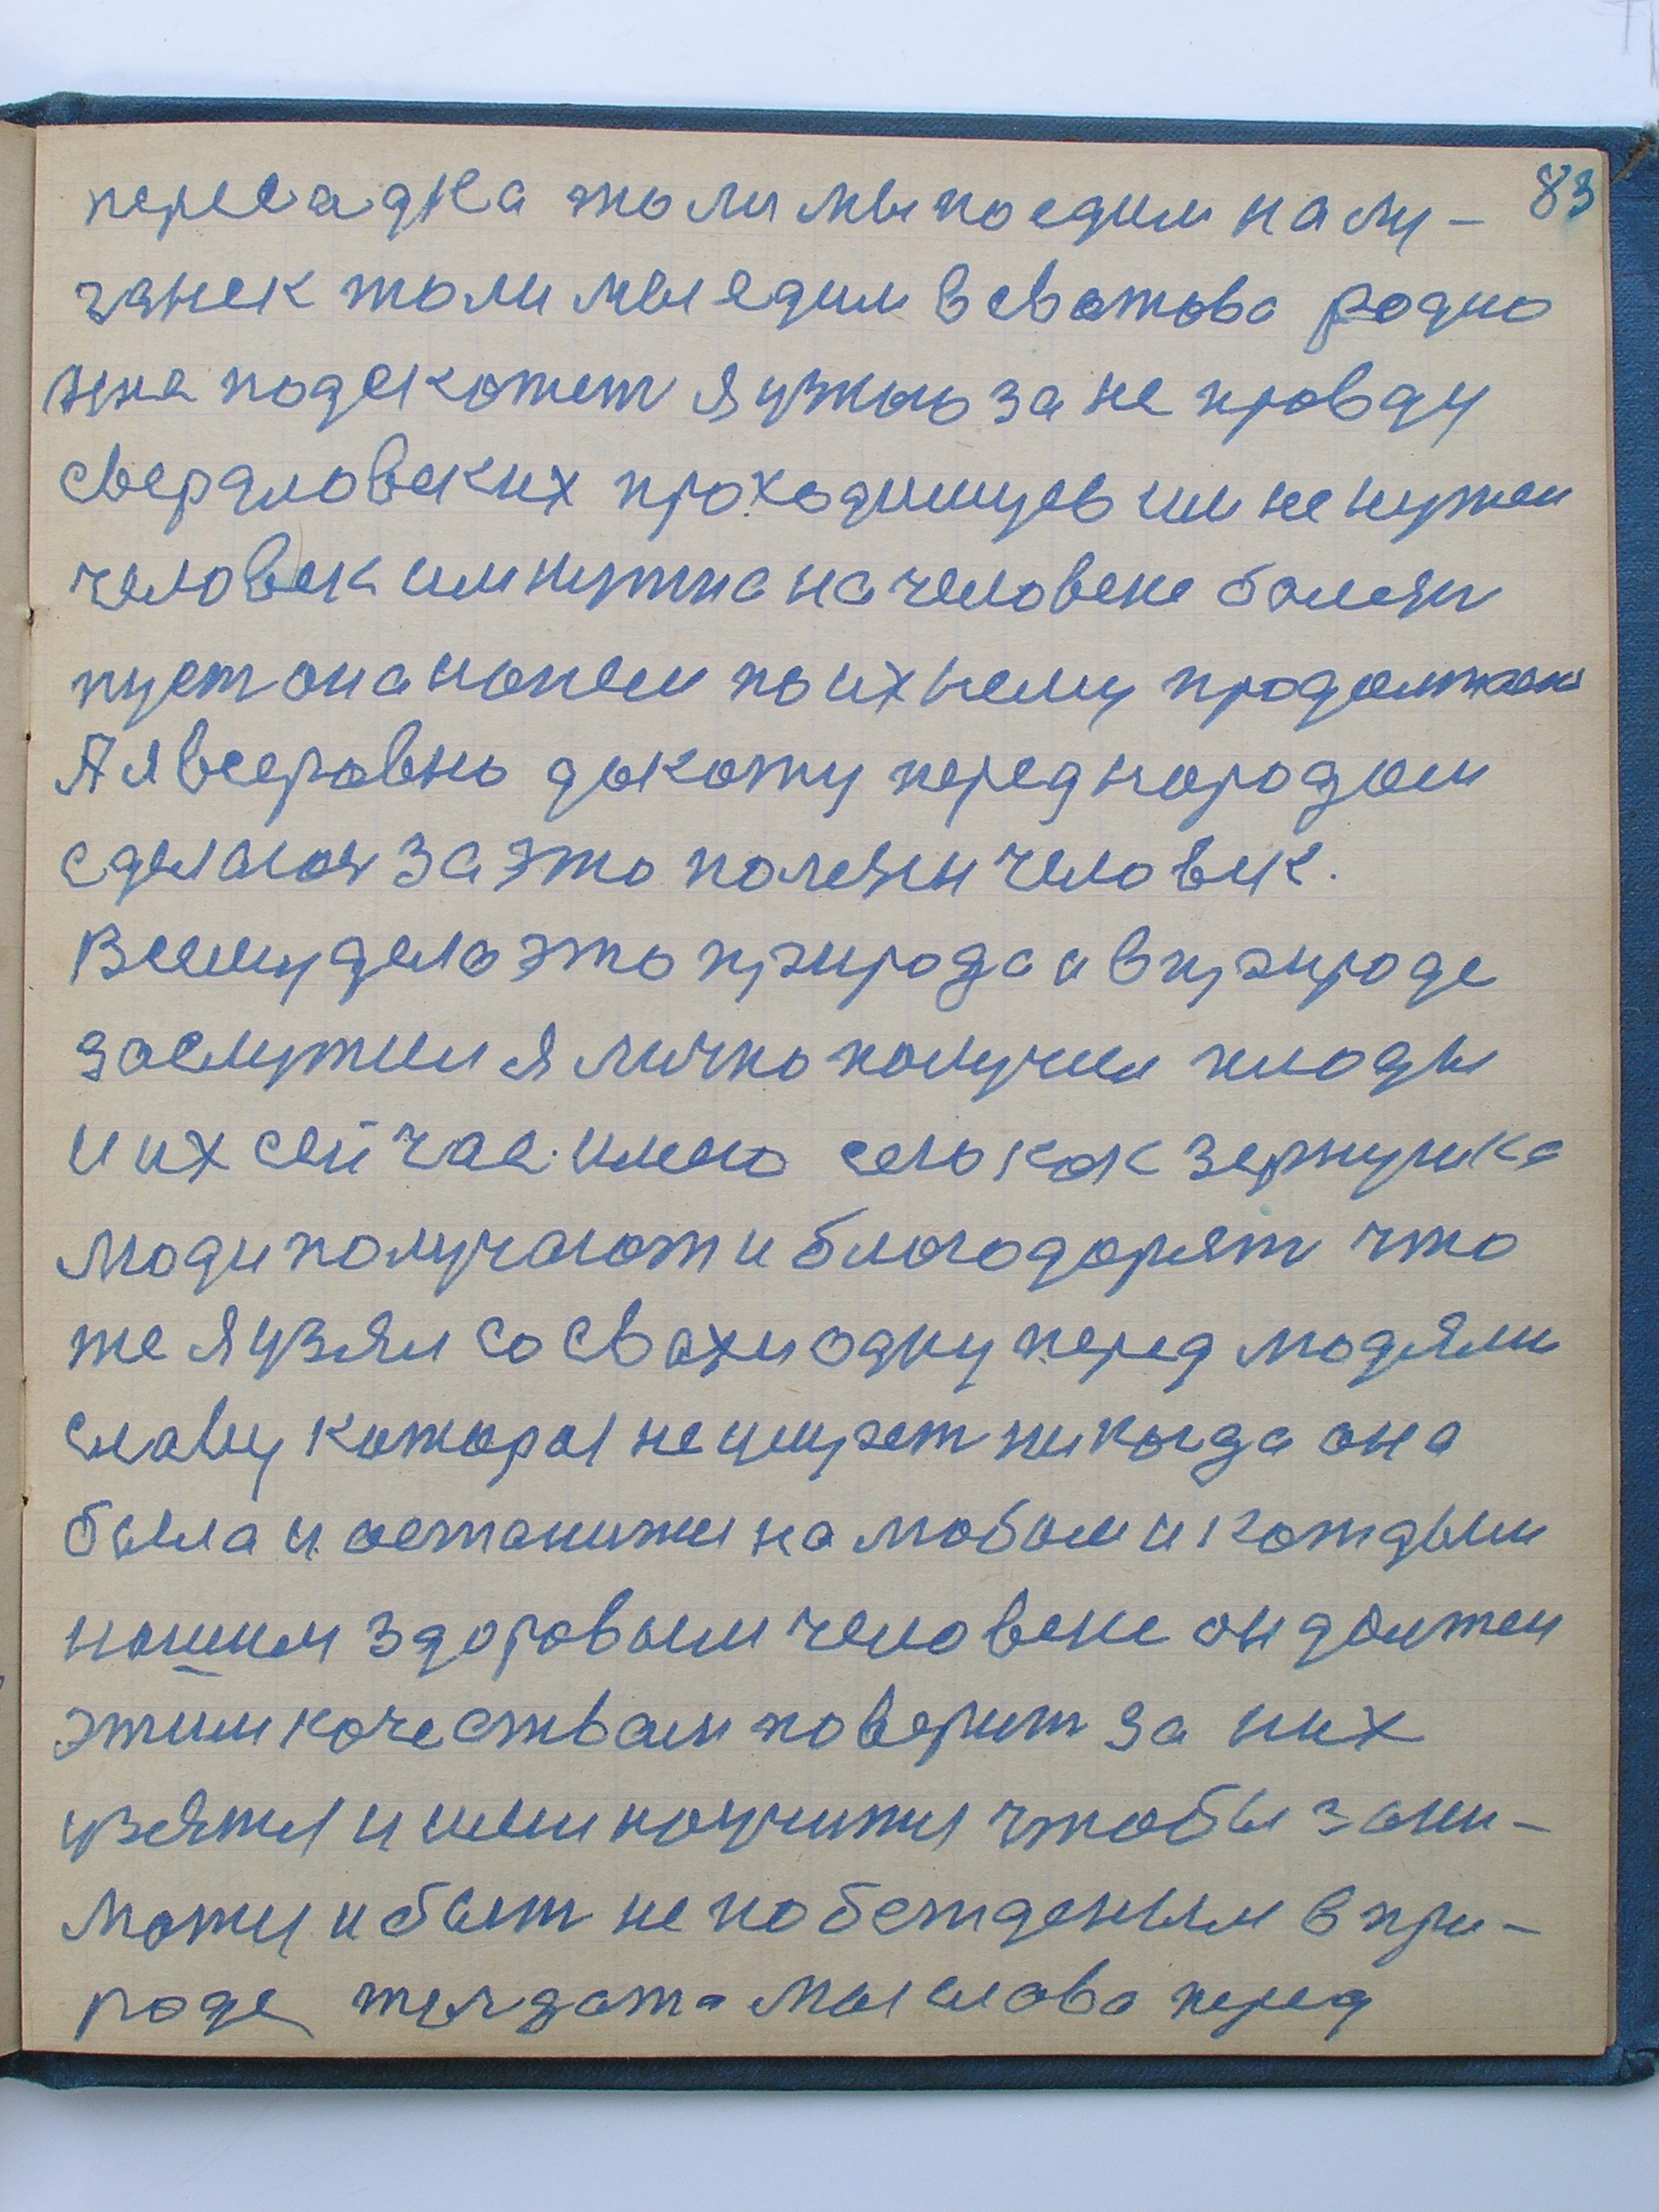 83
пересадка толи мы поедим на лу-
ганск толи мы едим в сватова родио
нна подскажет я ужыо за не правду
свердловских проходимцев им не нужен
человек им нужна на человеке болезн
пуст она на нем по ихнему продолжает
А я всеровно докожу перед народом
сделаюя за это полезен человек.
Всему дела это природа и в природе
заслужил я лично получил плоды
и их сейчас имею сею как зернушка
люди получают и благодарят что
же я узял со свахи одну перед людями
славу которая не умрет никогда она
была и останитя на любом и каждым
нашим здоровым человеке он должен
этим качествам поверит за них
узятя и ими научитя чтобы зани-
матя и быт не побежденым в при-
роде тел дат- мы слава перед